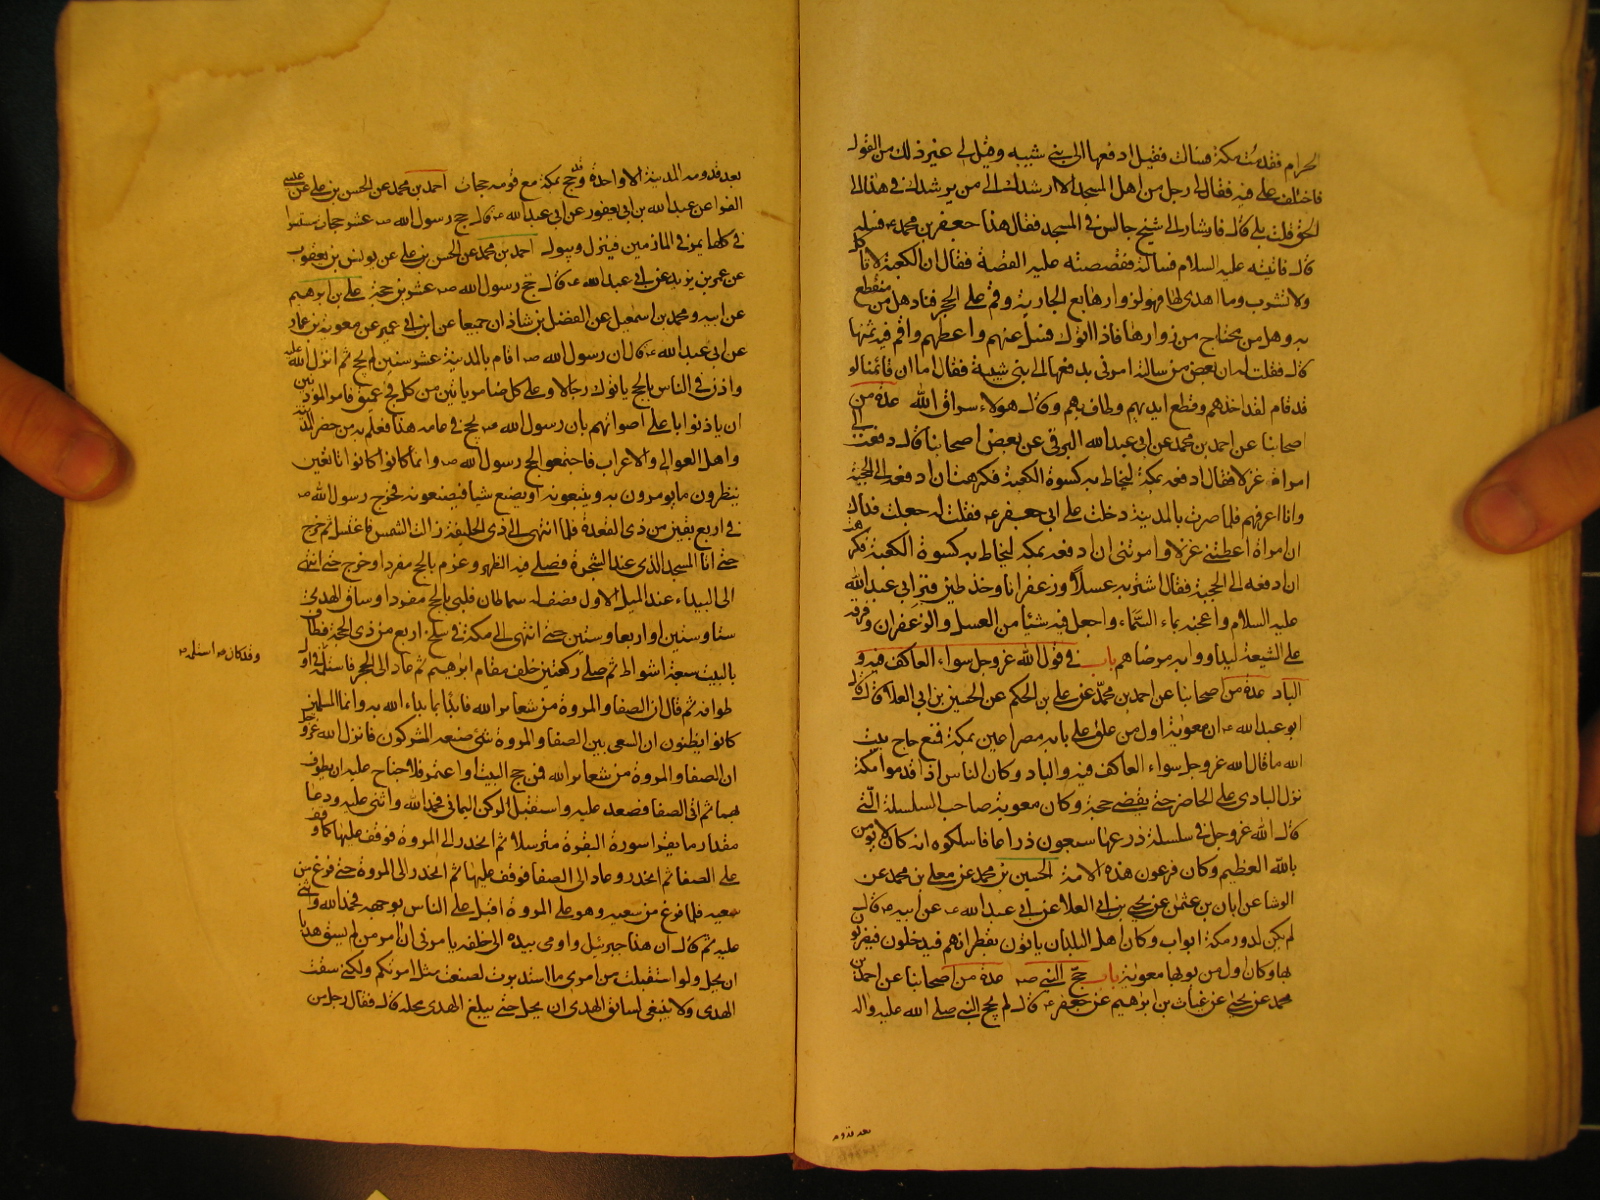 الحرام فقدمت مكة فسالت فقيل ادفعها الى بني شيبه وقيل لي غير ذلك من القول
فاختلف علي فيه فقال لي رجل من اهل المسجد الا ارشدك الى من يرشدك في هذا الى
الحق قلت بلى قال فاشار الى شيخ جالس في المسجد فقال هذا جعفر بن محمد ع فسله
قال فاتيته عليه السلام فسالته فقصصته عليه القصة فقال ان الكعبة لا تاكل
ولا تشرب وما اهدي لها فهو لزوارها بع الجارية وقم على الحجر فناد هل من منقطع
به وهل من محتاج من زوارها فاذا اتوك فسل عنهم واعطهم واقسم فيهم ثمنها
قال فقلت له ان بعض من سالته امرني بدفعها الى بني شيبة فقال اما ان قائمنا لو
قد قام لقد اخذهم وقطع ايديهم وطاف بهم وقال هولاء سراق الله عدة من
اصحابنا عن احمد بن محمد عن ابي عبد الله البرقي عن بعض اصحابنا قال دفعت الي
امراة غزلا فقال ادفعه بمكة ليخاط به كسوة الكعبة فكرهت ان ادفعه الى الحجبة
وانا اعرفهم فلما صرت بالمدينة دخلت على ابي جعفر ع فقلت له جعلت فداك
ان امراة اعطتني غزلا وامرتني ان ادفعه بمكه ليخاط به كسوة الكعبة فكرهت
ان ادفعه الى الحجبة فقال اشتر به عسلا وزعفرانا وخذ طين قبر ابي عبد الله
عليه السلام واعجنه بماء السماء واجعل فيه شيئا من العسل والزعفران وفرقه
على الشيعة ليداووا به مرضاهم باب في قول الله عز وجل سواء العاكف فيه و
الباد عدة من اصحابنا عن احمد بن محمد عن علي بن الحكم عن الحسين بن ابي العلا قال قال
ابو عبد الله ع ان معوية اول من علق على بابه مصراعين بمكة فمنع حاج بيت
الله ما قال الله عز وجل سواء العاكف فيه والباد وكان الناس اذا قدموا مكة
نزل البادي على الحاضر حتى يقضي حجه وكان معوية صاحب السلسلة التي
قال الله عز وجل في سلسلة ذرعها سبعون ذراعا فاسلكوه انه كان لا يومن
بالله العظيم وكان فرعون هذه الامة الحسين بن محمد عن معلى بن محمد عن
الوشا عن ابان بن عثمن عن يحيى بن ابي العلا عن ابي عبد الله ع عن ابيه ع قال
لم يكن لدور مكة ابواب وكان اهل البلدان ياتون بقطرانهم فيدخلون فيضربون
بها وكان اول من بوبها معوية باب حج النبي ص عدة من اصحابنا عن احمد بن
محمد عن يحيى عن غياث بن ابراهيم عن جعفر ع قال لم يحج النبي صلى الله عليه واله
بعد قدومه
بعد قدومه المدينة الا واحدة وقد حج بمكة مع قومه حجات احمد بن محمد عن الحسن بن علي عن عيسى
الفرا عن عبد الله بن ابي يعفور عن ابي عبد الله ع قال حج رسول الله ص عشر حجات مستسرا
في كلها يمر في المازمين فينزل ويبول احمد بن محمد عن الحسن بن علي عن يونس بن يعقوب
عن عمر بن يزيد عن ابي عبد الله ع قال حج رسول الله ص عشرين حجة علي بن ابرهيم
عن ابيه ومحمد بن اسمعيل عن الفضل بن شاذان جميعا عن ابن ابي عمير عن معوية بن عمار
عن ابي عبد الله ع قال ان رسول الله ص اقام بالمدينة عشر سنين لم يحج ثم انزل الله عليه
واذن في الناس بالحج ياتوك رجالا وعلى كل ضامر ياتين من كل فج عميق فامر الموذنين
ان ياذنوا باعلى اصواتهم بان رسول الله ص يحج في عامه هذا فعلم به من حضر المدينة
واهل العوالي والاعراب فاجتمعوا لحج رسول الله ص وانما كانوا تابعين
ينظرون ما يومرون به ويتبعونه او يصنع شيئا فيصنعونه فخرج رسول الله ص
في اربع بقين من ذي القعدة فلما انتهى الى ذي الحليفة زالت الشمس فاغتسل ثم خرج
حتى اتا المسجد الذي عند الشجرة فصلى فيه الظهر وعزم بالحج مفردا وخرج حتى انتهى
الى البيداء عند الميل الاول فصف له سماطان فلبى بالحج مفردا وساق الهدي
ستا وستين او اربعا وستين حتى انتهى الى مكة في سلخ اربع من ذي الحجة فطاف
بالبيت سبعة اشواط ثم صلى ركعتين خلف مقام ابرهيم ثم عاد الى الحجر فاستلمه في اول
وقد كان ص استلمه
طوافه ثم قال ان الصفا والمروة من شعائر الله فابدا بما بداء الله به وانما المسلمين
كانوا يظنون ان السعي بين الصفا والمروة شيء صنعه المشركون فانزل الله عز وجل
ان الصفا والمروة من شعائر الله فمن حج البيت او اعتمر فلا جناح عليه ان يطوف
بهما ثم اتى الصفا فصعد عليه واستقبل الركن اليماني فحمد الله واثنى عليه ودعا
مقدار ما يقرا سورة البقرة مترسلا ثم انحدر الى المروة فوقف عليها كما وقف
على الصفا ثم انحدر وعاد الى الصفا فوقف عليها ثم انحدر الى المروة حتى فرغ من
سعيه فلما فرغ من سعيه وهو على المروة اقبل على الناس بوجهه فحمد الله واثنى
عليه ثم قال ان هذا جبرئيل واومى بيده الى خلفه يامرني ان امر من لم يسق هديا
ان يحل ولو استقبلت من امري ما استدبرت لصنعت مثل ما امرتكم ولكني سقت
الهدي ولا ينبغي لسائق الهدي ان يحل حتى يبلغ الهدي محله قال فقال رجل من